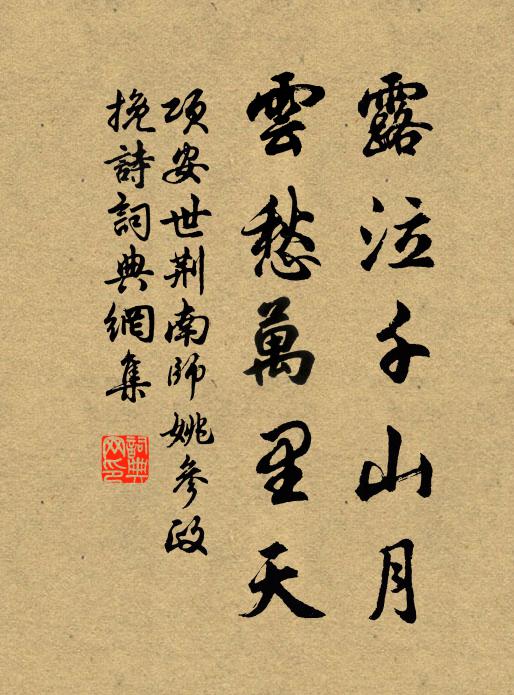 露泣千山月
雲愁萬里天
項安世荆南師姚參政
挽詩詞典網集
詞典网印